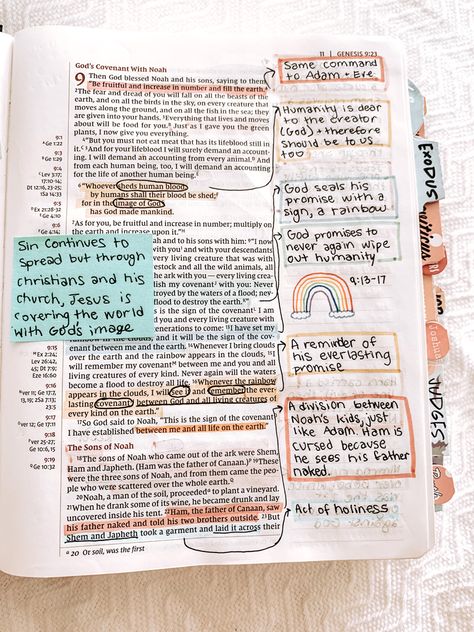 11 | GENESIS 9:23
God's Covenant With Noah
9 Then God blessed Noah and his sons, saying to them,
"Be fruitful and increase in number and fill the earth.
2The fear and dread of you will fall on all the beasts of the
earth, and on all the birds in the sky, on every creature that
moves along the ground, and on all the fish in the sea; they
are given into your hands. 3Everything that lives and moves
about will be food for you. Just as I gave you the green
plants, I now give you everything.
4"But you must not eat meat that has its lifeblood still in
it. 5And for your lifeblood I will surely demand an account-
ing. I will demand an accounting from every animal. And
from each human being, too, I will demand an accounting
for the life of another human being.
6"Whoever sheds human blood,
by humans shall their blood be shed;
for in the image of God
has God made mankind.
7As for you, be fruitful and increase in number; multiply on
the earth and increase upon it."
ah and to his sons with him: 9"I
with you and with your descendants
d with every living creature that was with
estock and all the wild animals, all
the ark with you — every living crea-
lish my covenant with you: Never
troyed by the waters of a flood; nev-
lood to destroy the earth."
is the sign of the covenant I am
and you and every living creature with
enerations to come: 13I have set my
rainbow in the clouds, and it will be the sign of the cov-
enant between me and the earth. 14Whenever I bring clouds
over the earth and the rainbow appears in the clouds, 15I
will remember my covenant between me and you and all
living creatures of every kind. Never again will the waters
become a flood to destroy all life. 16Whenever the rainbow
appears in the clouds, I will see it and remember the ever-
lasting covenant between God and all living creatures of
every kind on the earth."
17So God said to Noah, "This is the sign of the covenant
I have established between me and all life on the earth."
The Sons of Noah
18The sons of Noah who came out of the ark were Shem,
Ham and Japheth. (Ham was the father of Canaan.) 19These
were the three sons of Noah, and from them came the peo-
ple who were scattered over the whole earth.
20Noah, a man of the soil, proceeded to plant a vineyard.
21When he drank some of its wine, he became drunk and lay
uncovered inside his tent. 22Ham, the father of Canaan, saw
his father naked and told his two brothers outside. 23But
Shem and Japheth took a garment and laid it across their
a 20 Or soil, was the first
Sin continues to
spread but through
christians and his
church, Jesus is
covering the world
with God's image
Same command
to Adam + Eve
Humanity is dear
to the creator
(God) + therefore
should be to us
too
God seals his
promise with a
sign, a rainbow
God promises to
never again wipe
out humanity
9:13-17
A reminder of
his everlasting
promise
A division between
Noah's kids, just
like Adam. Ham is
cursed because
he sees his father
naked.
Act of holiness
EXODUS
JUDGES